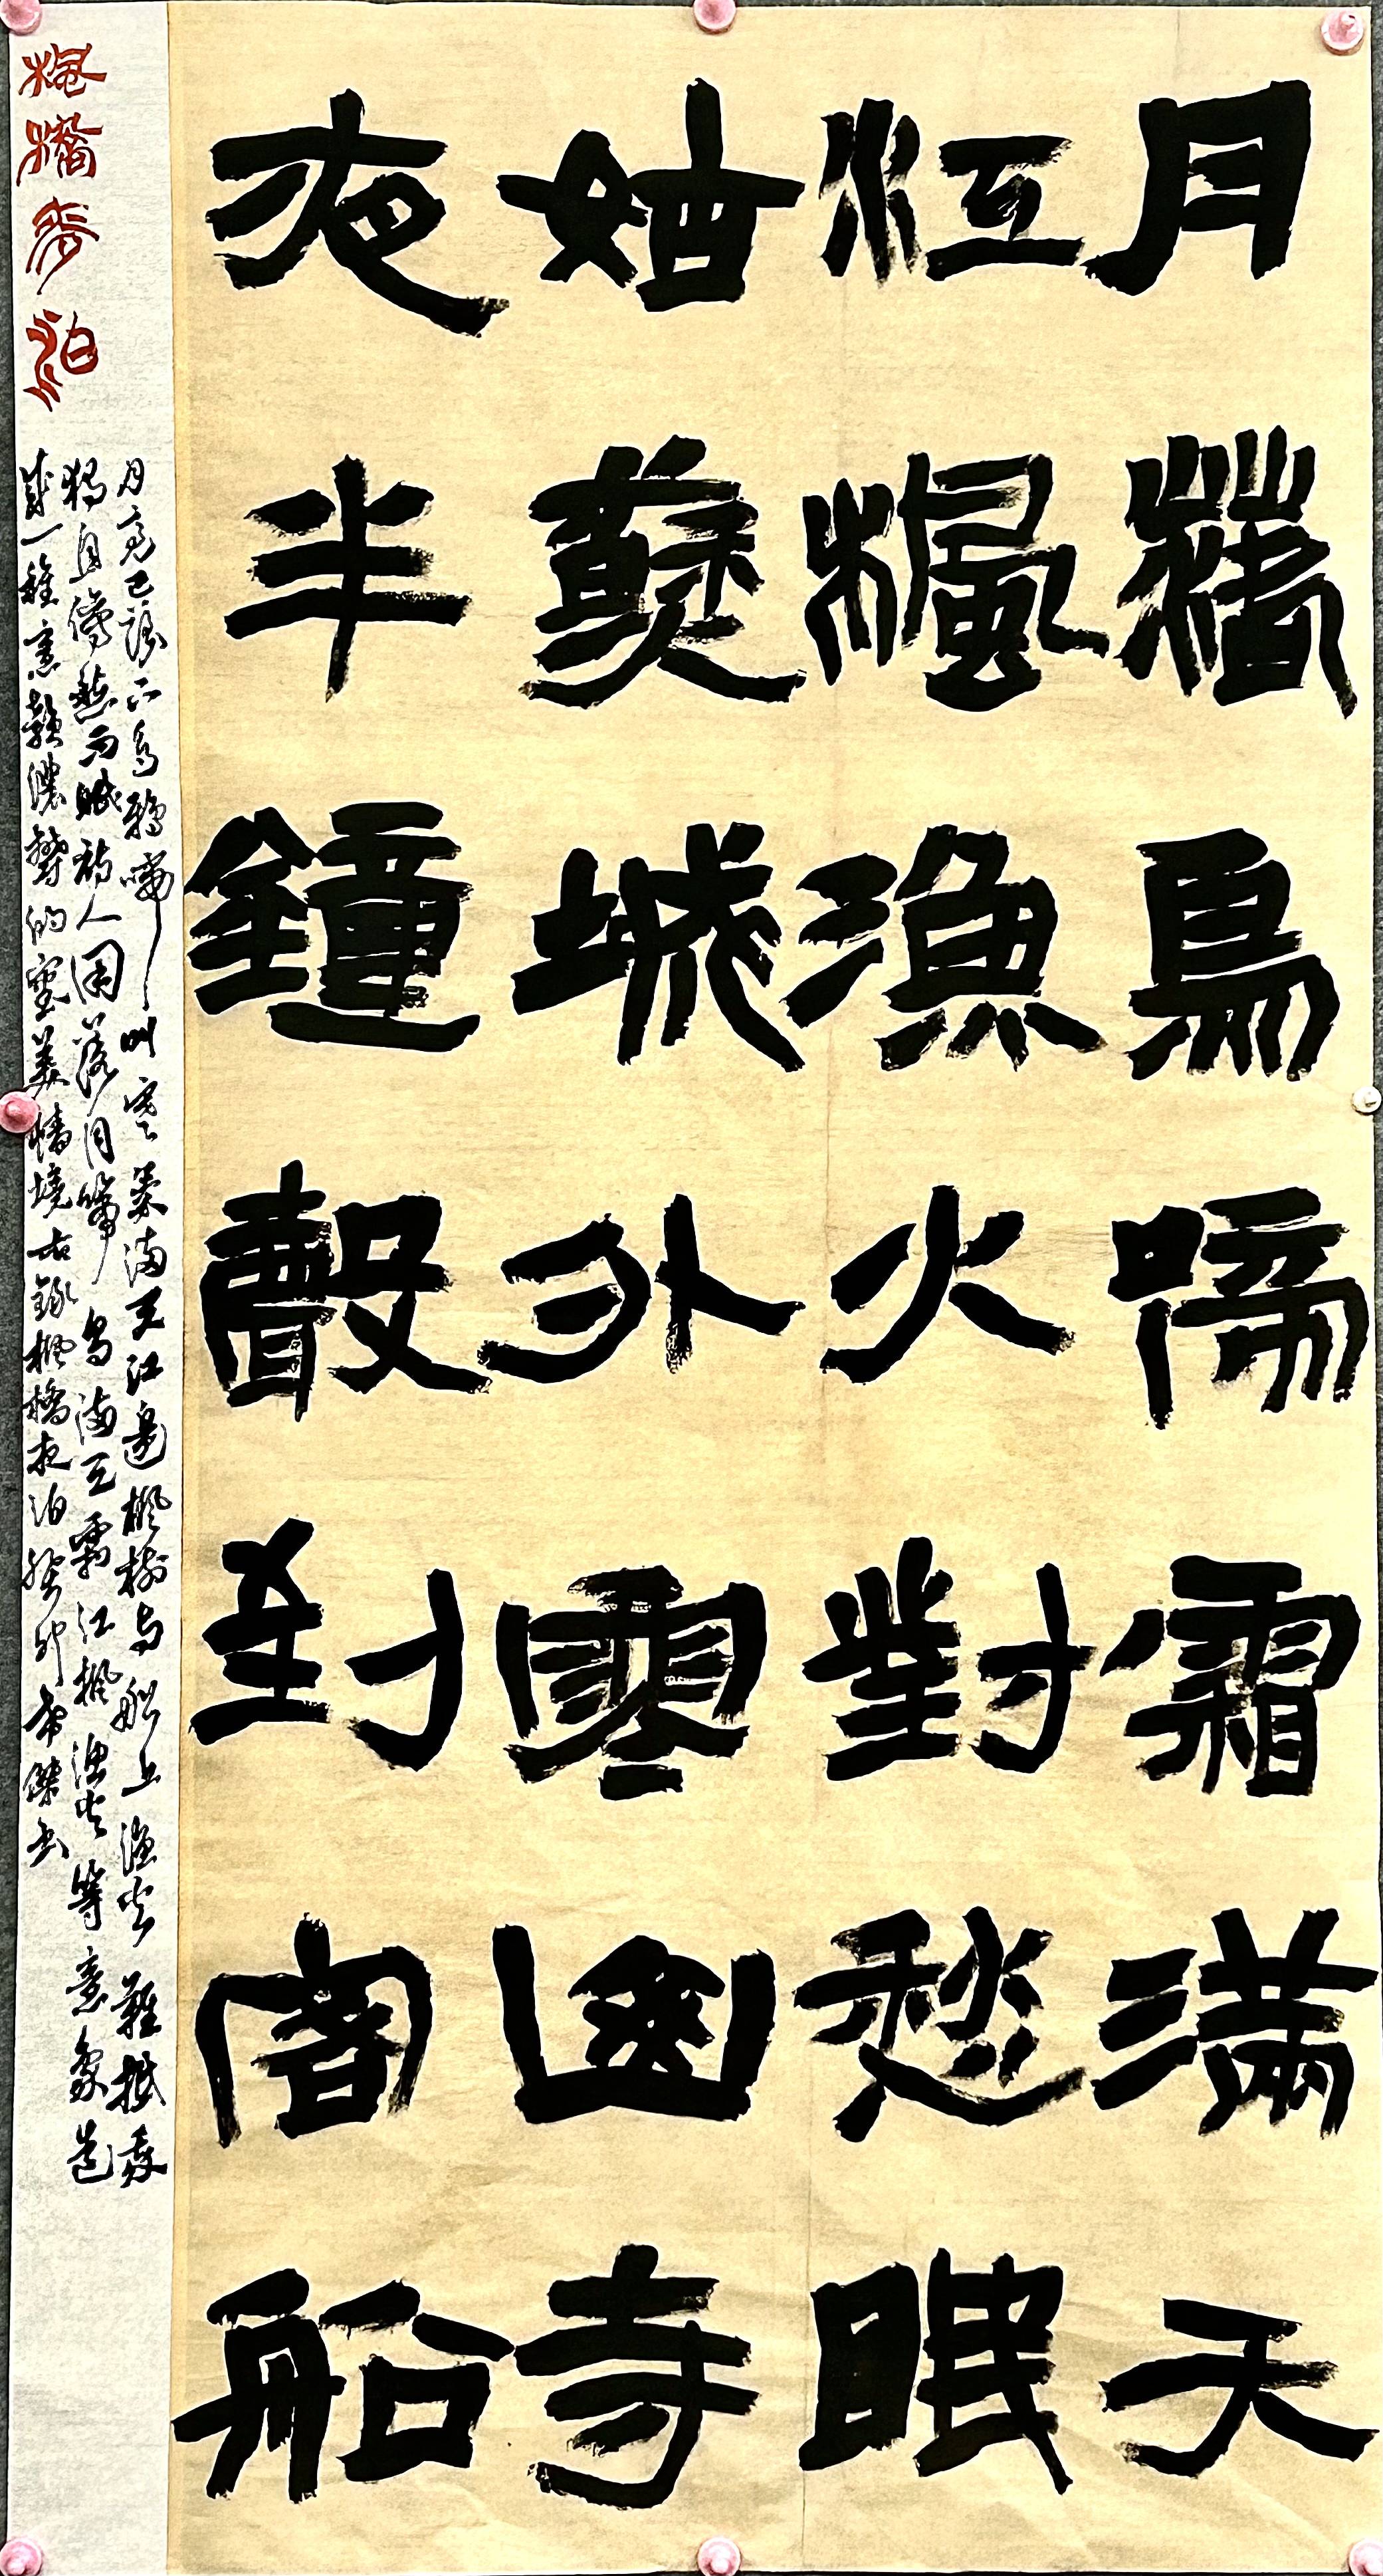 月落烏啼霜滿天
江楓漁火對愁眠
姑蘇城外寒山寺
夜半鐘聲到客船
楓橋夜泊
月亮已落下烏鴉啼叫寒氣滿天江邊楓樹与船上漁火難抵我
獨自傍愁而眠詩人用落月啼烏滿天霜江楓漁火等意象造
成一種意韻濃鬱的審美情境右錄楓橋夜泊癸卯希傑書